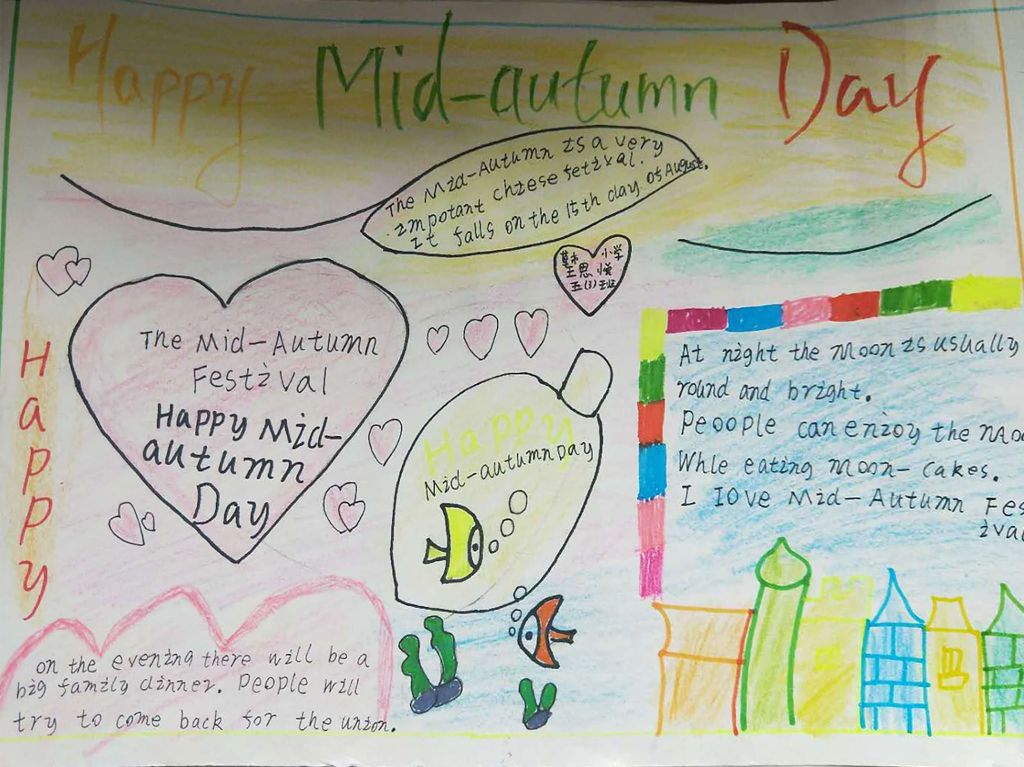 Happy Mid-autumn Day
The Mid-Autumn is a very
impotant chiese fetival.
It falls on the 15th day of August.
小学
王思
五(3)班
The Mid-Autumn
Festival
Happy Mid-
autumn
Day
Happy
Happy
Mid-autumn Day
At night the moon is usually
round and bright.
Peoople can enjoy the
Whle eating moon-cakes.
I love Mid-Autumn Fes
ival
on the evening there will be a
big family dinner. People will
try to come back for the union.